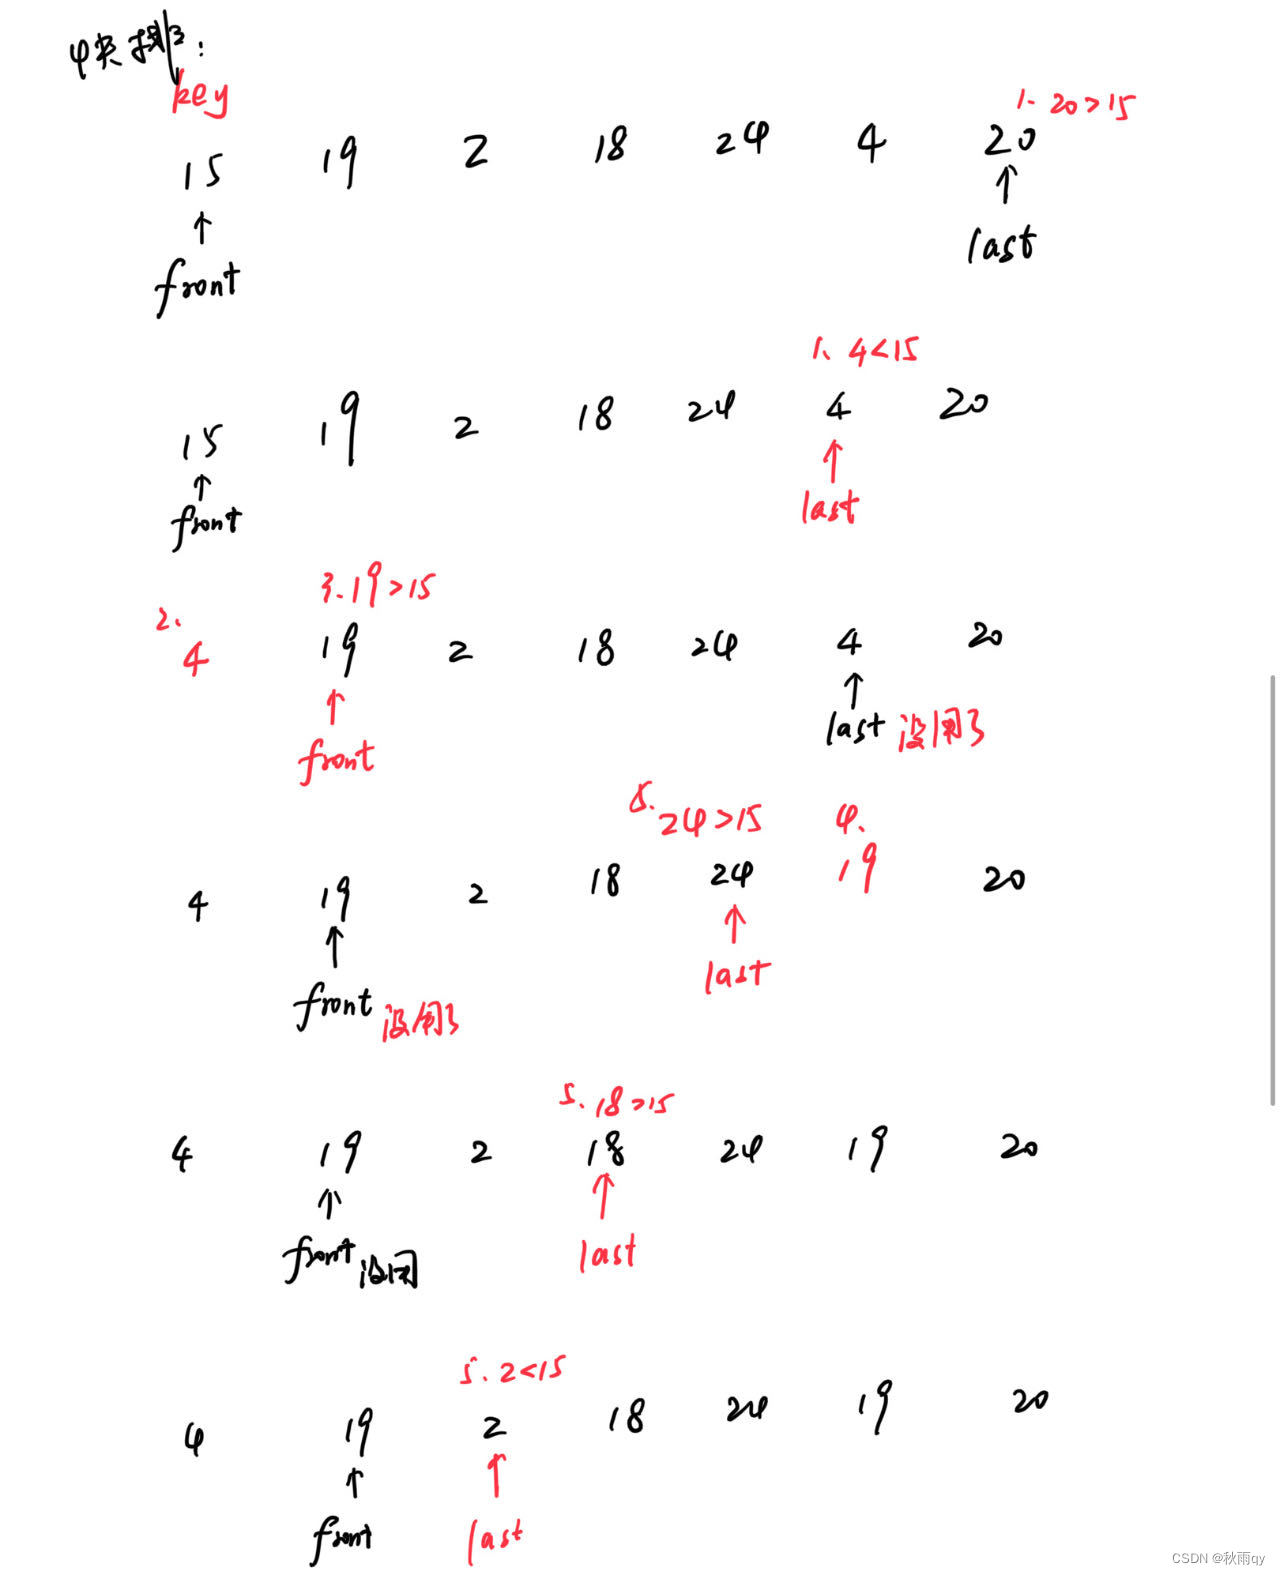 快排:
key
1. 20>15
15 19 2 18 24 4 20
↑ ↑
front last
1. 4<15
15 19 2 18 24 4 20
↑ ↑
front last
2. 3. 19>15
4 19 2 18 24 4 20
↑ ↑
front last 没用了
5. 24>15 4.
4 19 2 18 24 19 20
↑ ↑
front 没用了 last
5. 18>15
4 19 2 18 24 19 20
↑ ↑
front 没用 last
5. 2<15
4 19 2 18 24 19 20
↑ ↑
front last
CSDN @秋雨qy